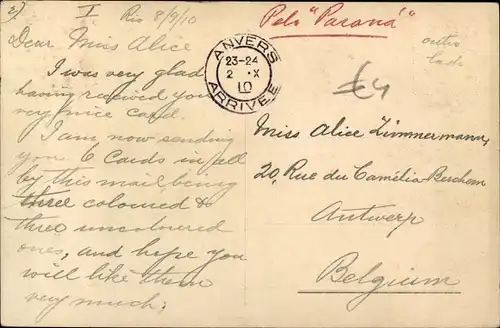 2)
I Rio 8/9/10
Pelo "Paraná"
Dear Miss Alice
I was very glad
having received your
very nice card.
I am now sending
you 6 Cards in all
by this mail, being
three coloured &
three uncoloured
ones, and hope you
will like them
very much.
ANVERS
23-24
2 X
10
ARRIVEE
outro
lado
£4
Miss Alice Zimmermann,
20, Rue du Camélia-Berchem
Antwerp
Belgium